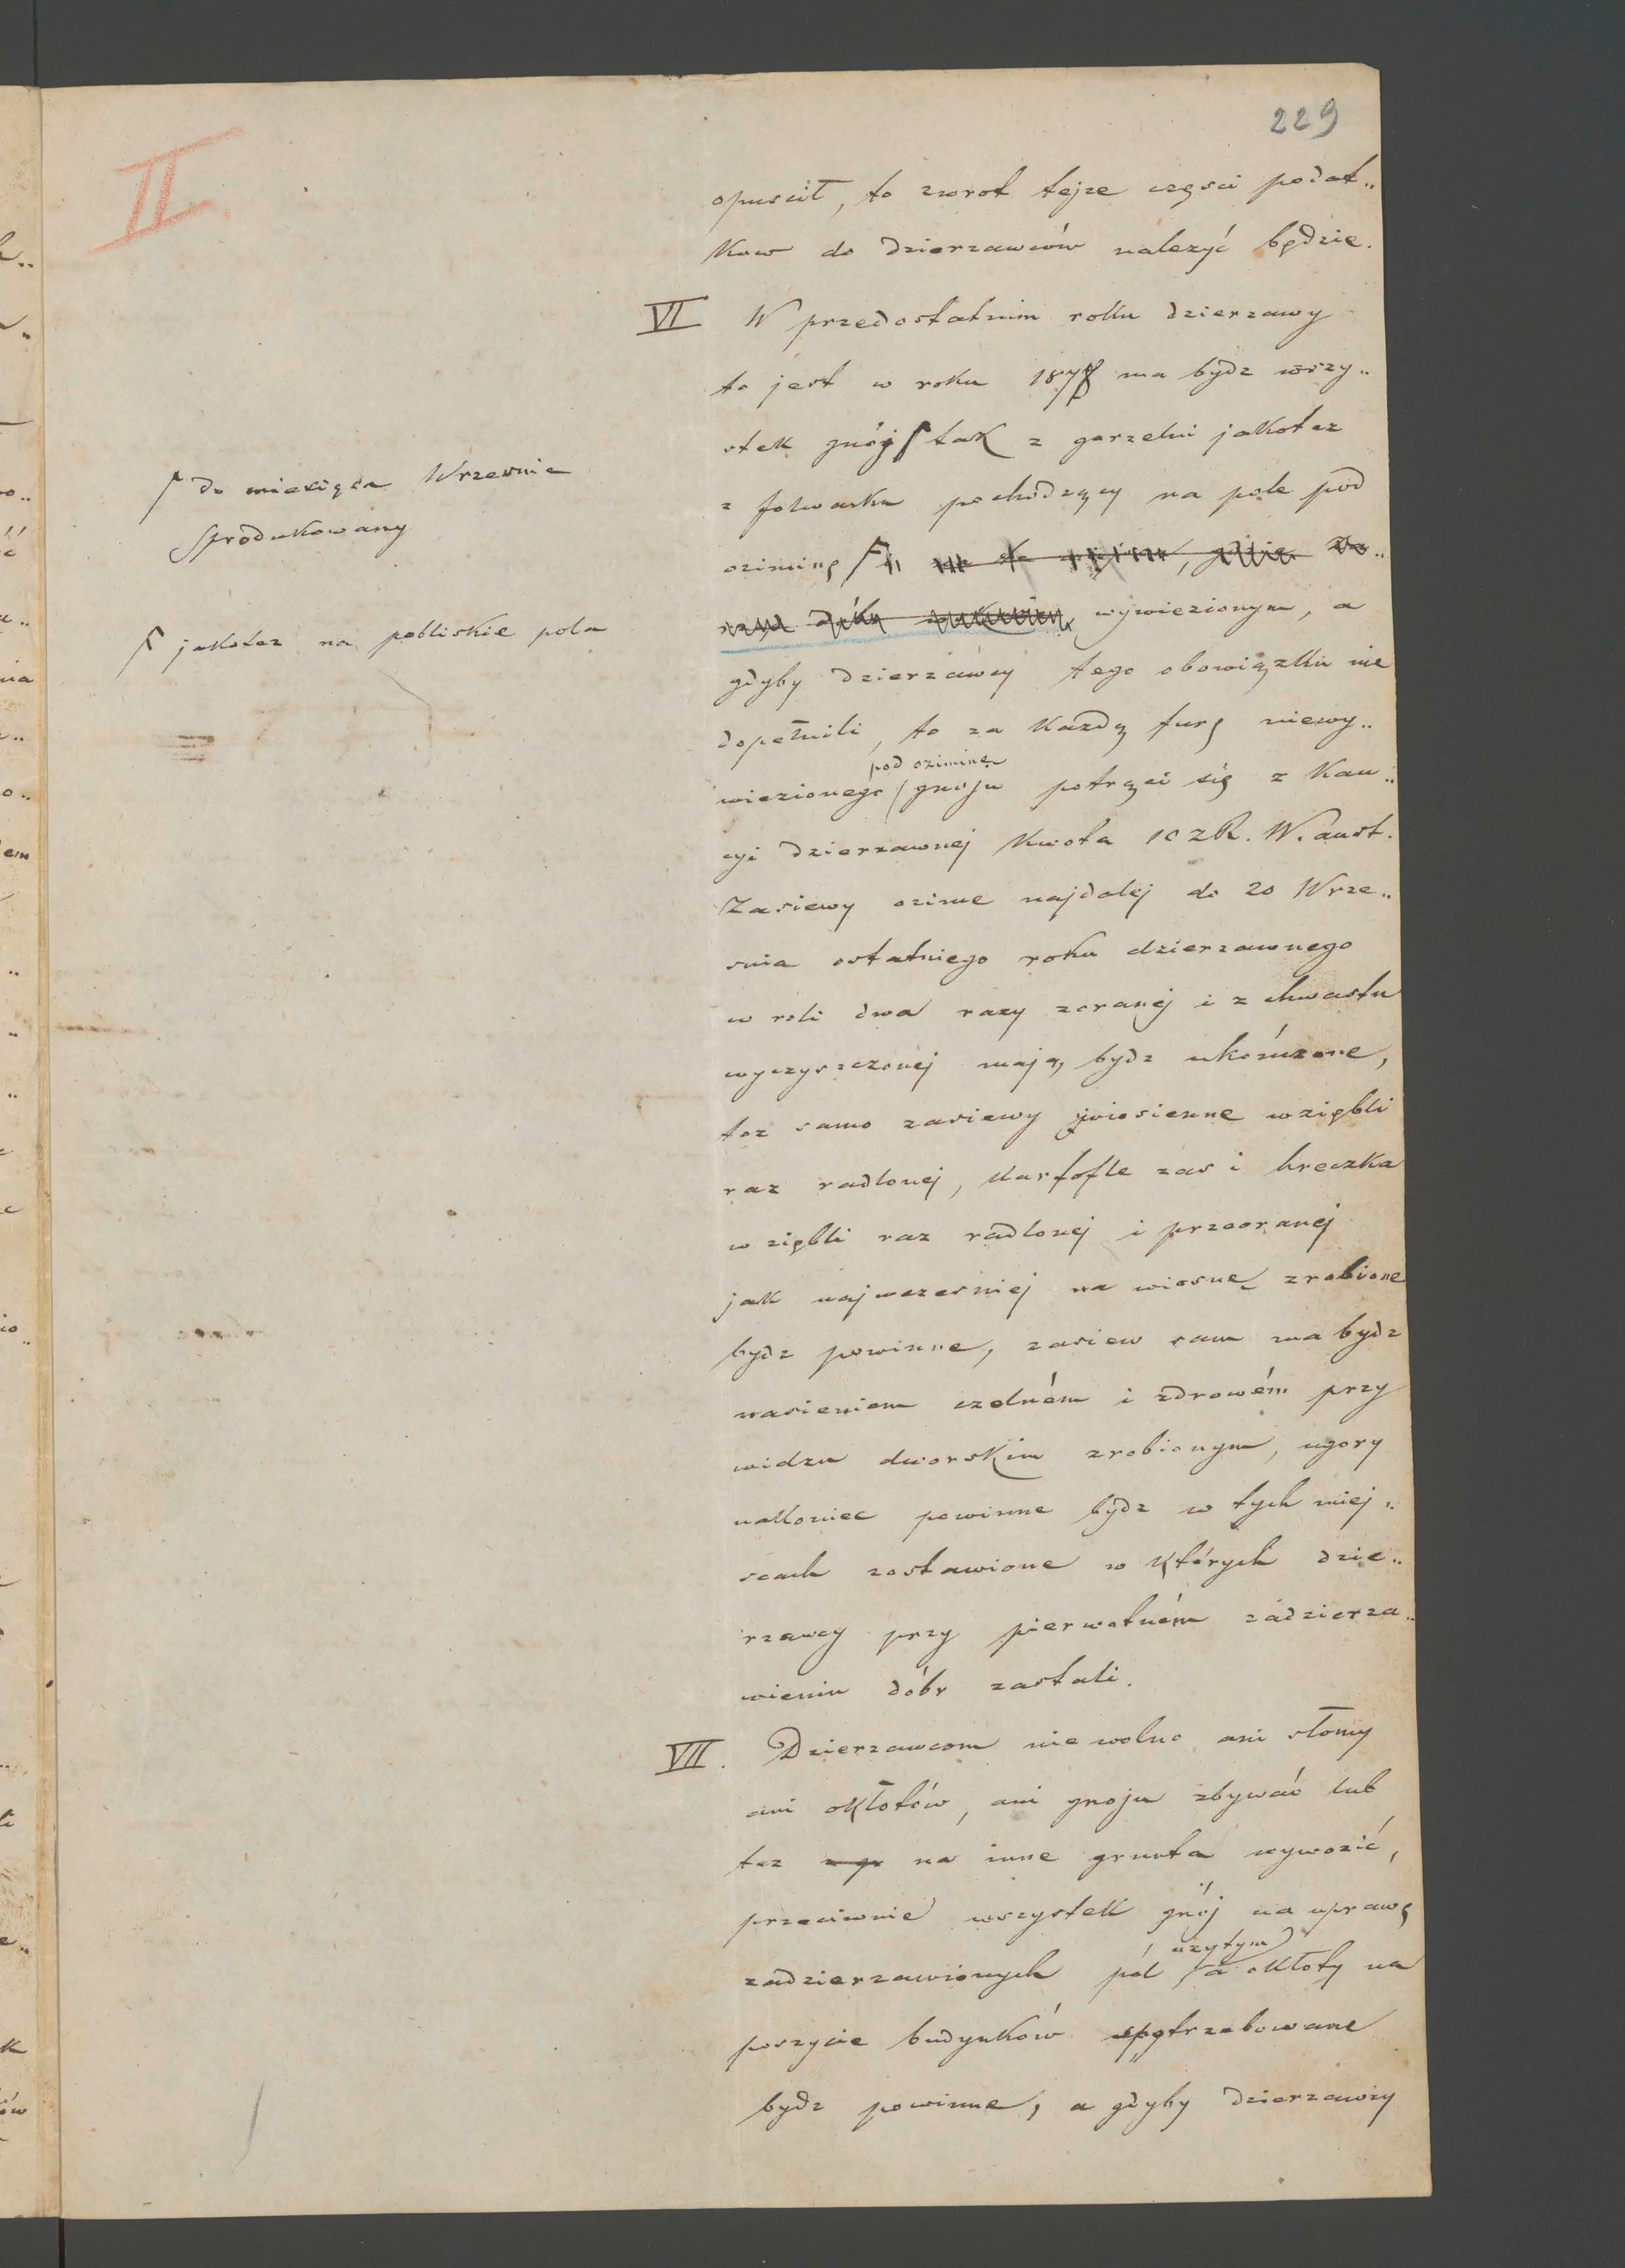 229
II.
opuscił, to zwrot tejze częsci podat..
kow do dzierzawców nalezyć będzie.
VI W przedostatnim roku dzierzawy
to jest w roku 1878 ma bydz wszy..
stek gnój ſ tak z gorzelni jakotez
ſ do miesiąca Wrzesnia
sprodukowany
z folwarku pochodzący na pole pod
oziminę F
wywiezionym, a
F jakotez na pobliskie pola
gdyby dzierzawcy tego obowiązku nie
dopełnili, to za kazdą furę niewy..
pod oziminę
wiezionego gnoju potrąci się z kau..
cyi dzierzawnej kwota 10 zR. W. aust.
Zasiewy ozime najdalej do 20 Wrze..
snia ostatniego roku dzierzawnego
w roli dwa razy zoranej i z chwastu
wyczyszczonej mają bydz ukończone,
toz samo zasiewy wiosienne w ziębli
raz radlonej, Kartofle zas i hreczka
w ziębli raz radlonej i przeoranej
jak najwczesniej na wiosnę zrobione
bydz powinne, zasiew sam ma bydz
nasieniem czelném i zdrowém przy
widzu dworskim zrobionym, ugory
nakoniec powinne bydz w tych miej..
scach zostawione w których dzie..
rzawcy przy pierwotném zadzierza..
wieniu dóbr zastali.
VII. Dzierzawcom nie wolno ani słomy
ani okłotów, ani gnoju zbywać lub
tez na inne grunta wywozić,
przeciwnie wszystek gnój na uprawę
uzytym
zadzierzawionych pól a okłoty na
poszycie budynków spotrzebowane
bydz powinne, a gdyby dzierzawcy